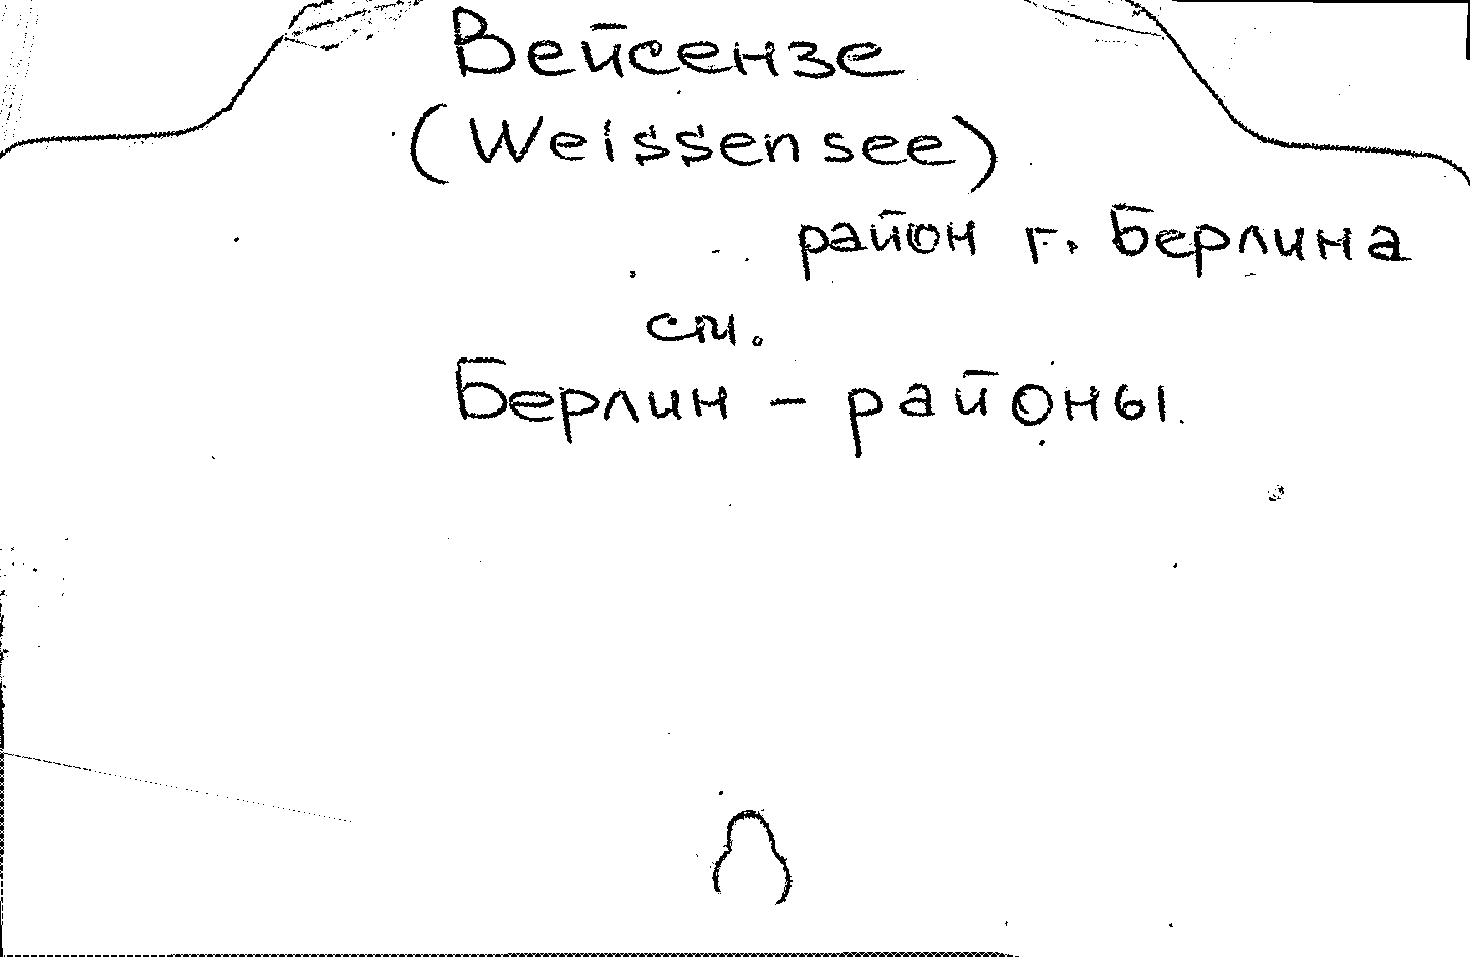 Вейсензе
(Weissensee)
район г. Берлина
см.
Берлин - районы.